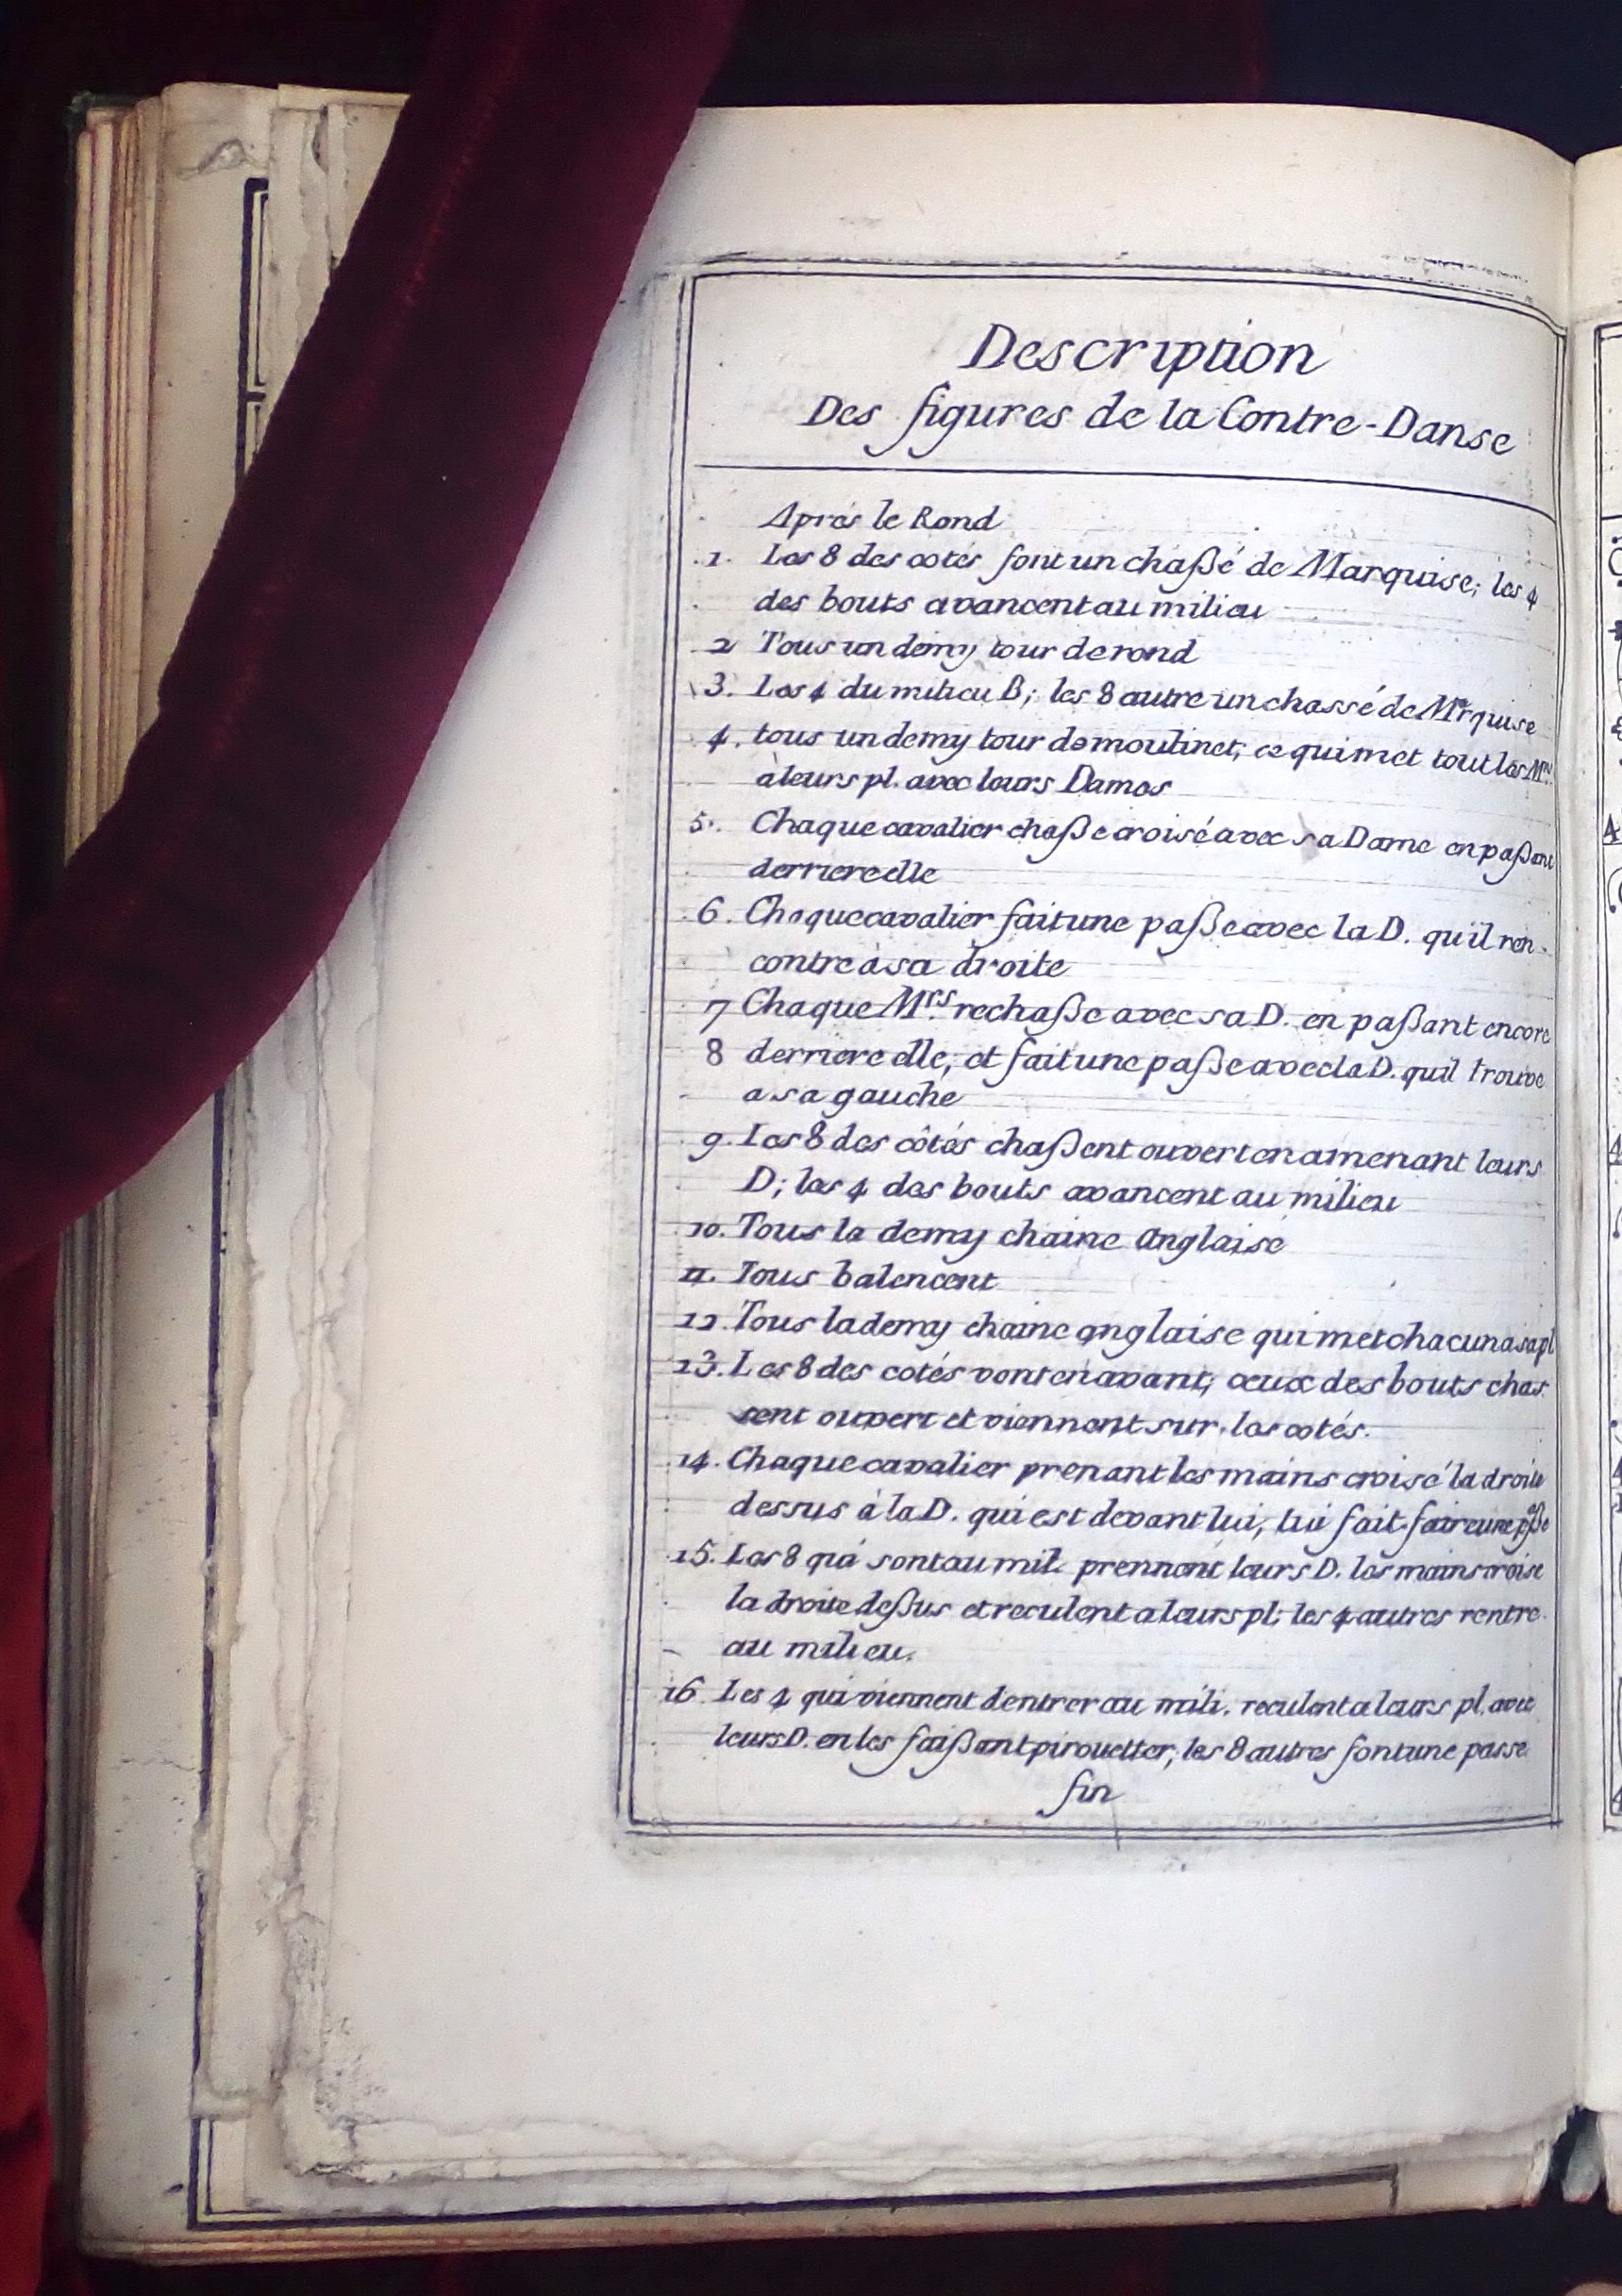 Description
Des figures de la Contre-Danse
Aprés le Rond
1. Les 8 des cotés font un chaßé de Marquise; les 4
des bouts avancent au milieu
2 Tous un demy tour de rond
3. Les 4 du milieu B; les 8 autre un chassé de Marquise
4. tous un demy tour de moulinet; ce qui met tout les Mrs.
à leurs pl. avec leurs Dames
5. Chaque cavalier chaße croisé avec sa Dame en paßant
derriere elle
6. Chaque cavalier fait une paße avec la D. qu'il ren-
contre à sa droite
7 Chaque Mrs. rechaße avec sa D. en paßant encore
8 derriere elle; et fait une paße avec la D. quil trouve
a sa gauche
9. Les 8 des côtés chaßent ouvert en amenant leurs
D; les 4 des bouts avancent au milieu
10. Tous la demy chaine Anglaise
11. Tous balencent
12. Tous la demy chaine anglaise qui met chacun a sa pl
13. Les 8 des cotés vont en avant; ceux des bouts chas
sent ouvert et viennent sur les cotés.
14. Chaque cavalier prenant les mains croisé la droite
dessus à la D. qui est devant lui, lui fait faire une paße
15. Les 8 qui sont au mil. prennent leurs D. les mains croise
la droite deßus et reculent a leurs pl; les 4 autres rentre
au milieu.
16. Les 4 qui viennent dentrer au mili. reculent a leurs pl. avec
leurs D. en les faißant pirouetter; les 8 autres font une passe
fin